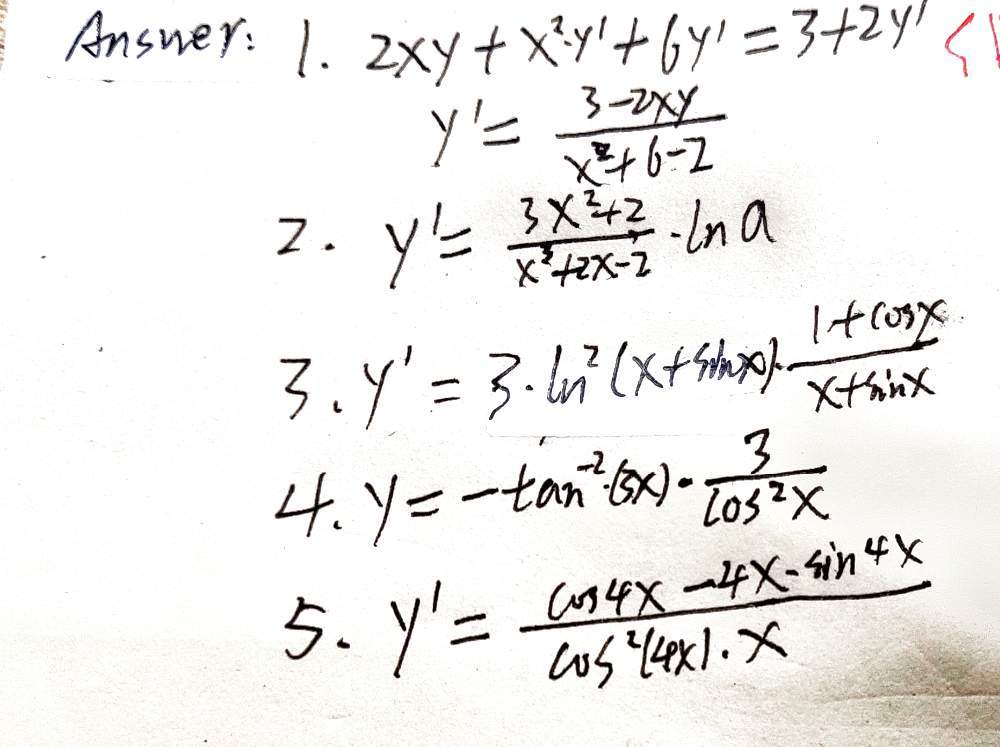 Answer: 1. 2xy + x²·y' + 6y' = 3+2y'
y' = \frac{3-2xy}{x²+6-2}
2. y' = \frac{3x²+2}{x³+2x-2} · ln a
3. y' = 3·ln²(x+sinx)·\frac{1+cosx}{x+sinx}
4. y = -tan⁻²·(3x)·\frac{3}{cos²x}
5. y' = \frac{cos4x -4x·sin4x}{cos²(4x)·x}